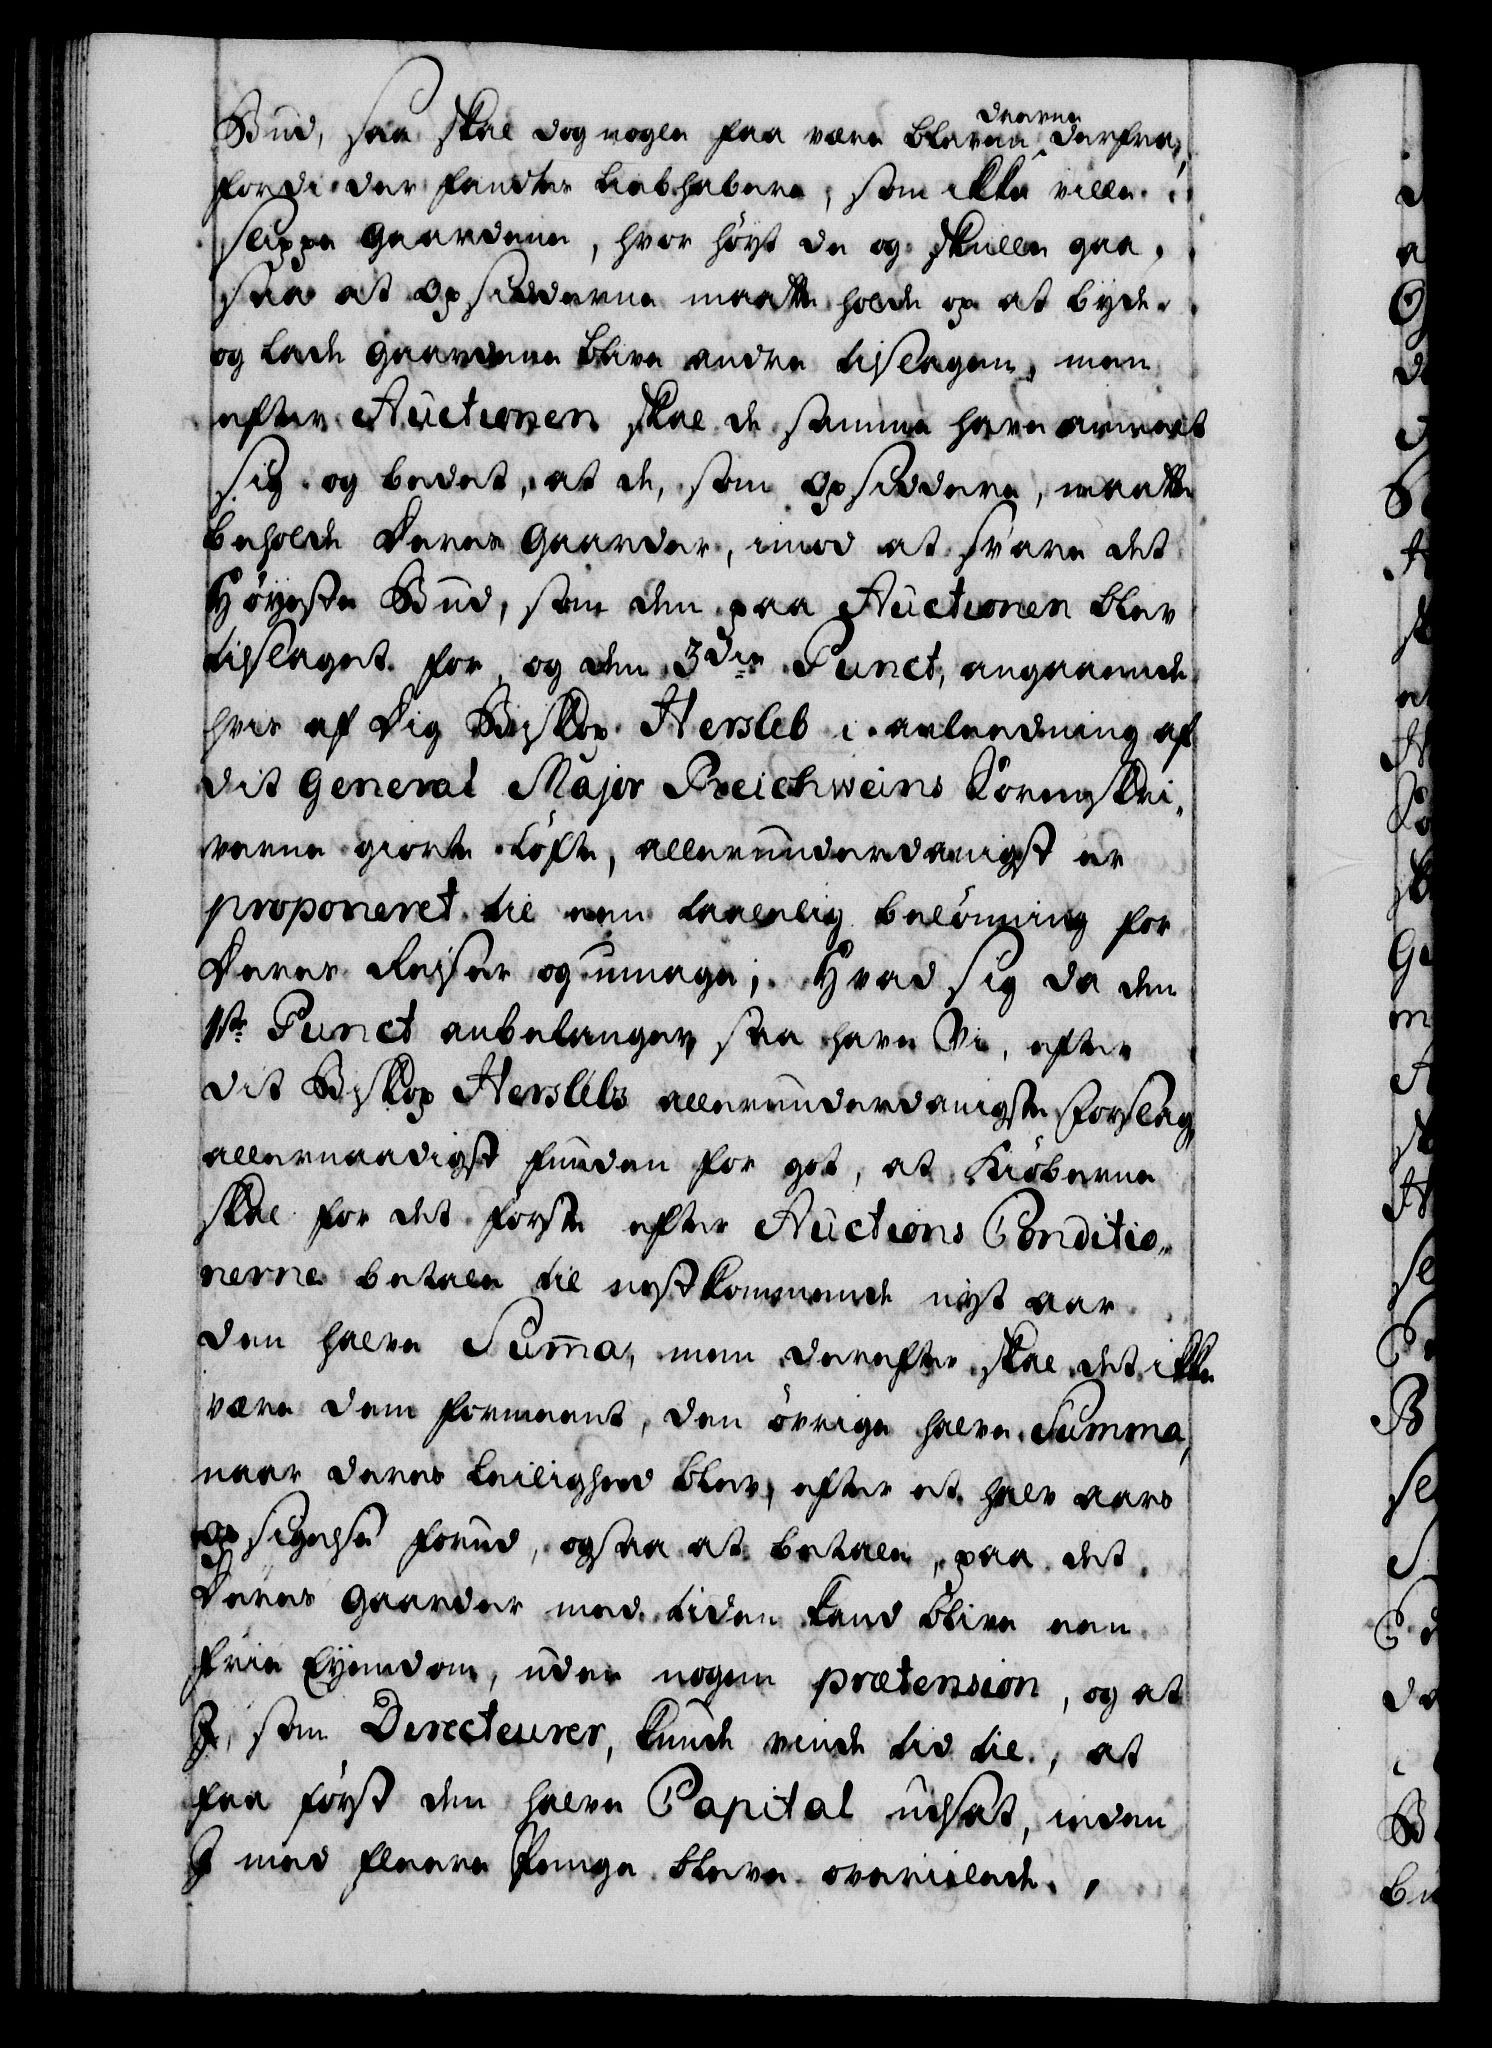 Bud, saa skal dog nogle faa være blevne drevne derfra,
fordi der fandtes liebhabere, som ikke ville
slippe Gaardene, hvor höyt de og skulle gaa,
saa at Opsidderne maatte holde op at byde
og lade Gaardene blive andre tilslagen, men
efter Auctionen skal de samme have anmeldt
sig og bedet, at de, som Opsiddere, maatte
beholde deres Gaarder, imod at svare det
Höyeste Bud, som den paa Auctionen blev
tilslaget for, og den 3die Punct, angaaende
hvis af Dig Biskop Hersleb i anledning af
dit General Major Reichweins Sorenskri-
verne giorte Löfte, allerunderdanigst er
proponeret til een taalelig belönning for
Deres Reyser og umage; Hvad sig da den
1ste Punct anbelanger, saa have Vi, efter
dit Biskop Herslebs allerunderdanigste Forslag,
allernaadigst funden for got, at Kiöberne
skal for det förste efter Auctions Conditio-
nerne betale til nestkommende nyt aar
den halve Summa, men derefter skal det ikke
være dem formeent, den övrige halve Summa,
naar deres leilighed blev, efter et halv aars
opsigelse forud, ogsaa at betale, paa det
Deres Gaarder med tiden kand blive een
frie Eyendom, uden nogen prætension, og at
I, som Directeurer, kunde vinde tid til, at
faa först den halve Capital udsat, inden
I med fleere Penge bleve overilede,